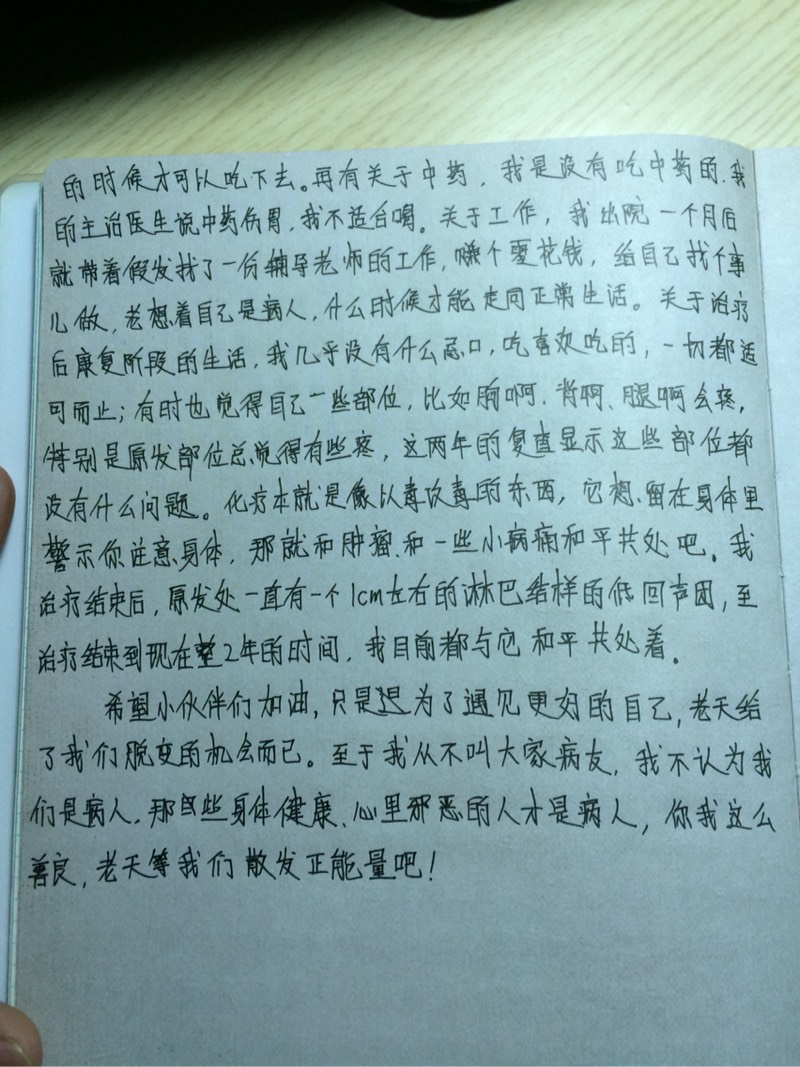 的时候才可以吃下去。再有关于中药，我是没有吃中药的，我
的主治医生说中药伤胃，我不适合喝。关于工作，我出院一个月后
就带着假发找了一份辅导老师的工作，赚个零花钱，给自己找个事
儿做，老想着自己是病人，什么时候才能走向正常生活。关于治疗
后康复阶段的生活，我几乎没有什么忌口，吃喜欢吃的，一切都适
可而止；有时也觉得自己一些部位，比如胸啊、背啊、腿啊会疼，
特别是原发部位总觉得有些疼，这两年的复查显示这些部位都
没有什么问题。化疗本就是像以毒攻毒的东西，它想留在身体里
警示你注意身体，那就和肿瘤、和一些小病痛和平共处吧。我
治疗结束后，原发处一直有一个1cm左右的淋巴结样的低回声团，至
治疗结束到现在整2年的时间，我目前都与它和平共处着。
希望小伙伴们加油，只是为了遇见更好的自己，老天给
了我们脱变的机会而已。至于我从不叫大家病友，我不认为我
们是病人，那些身体健康、心里邪恶的人才是病人，你我这么
善良，老天等我们散发正能量吧！